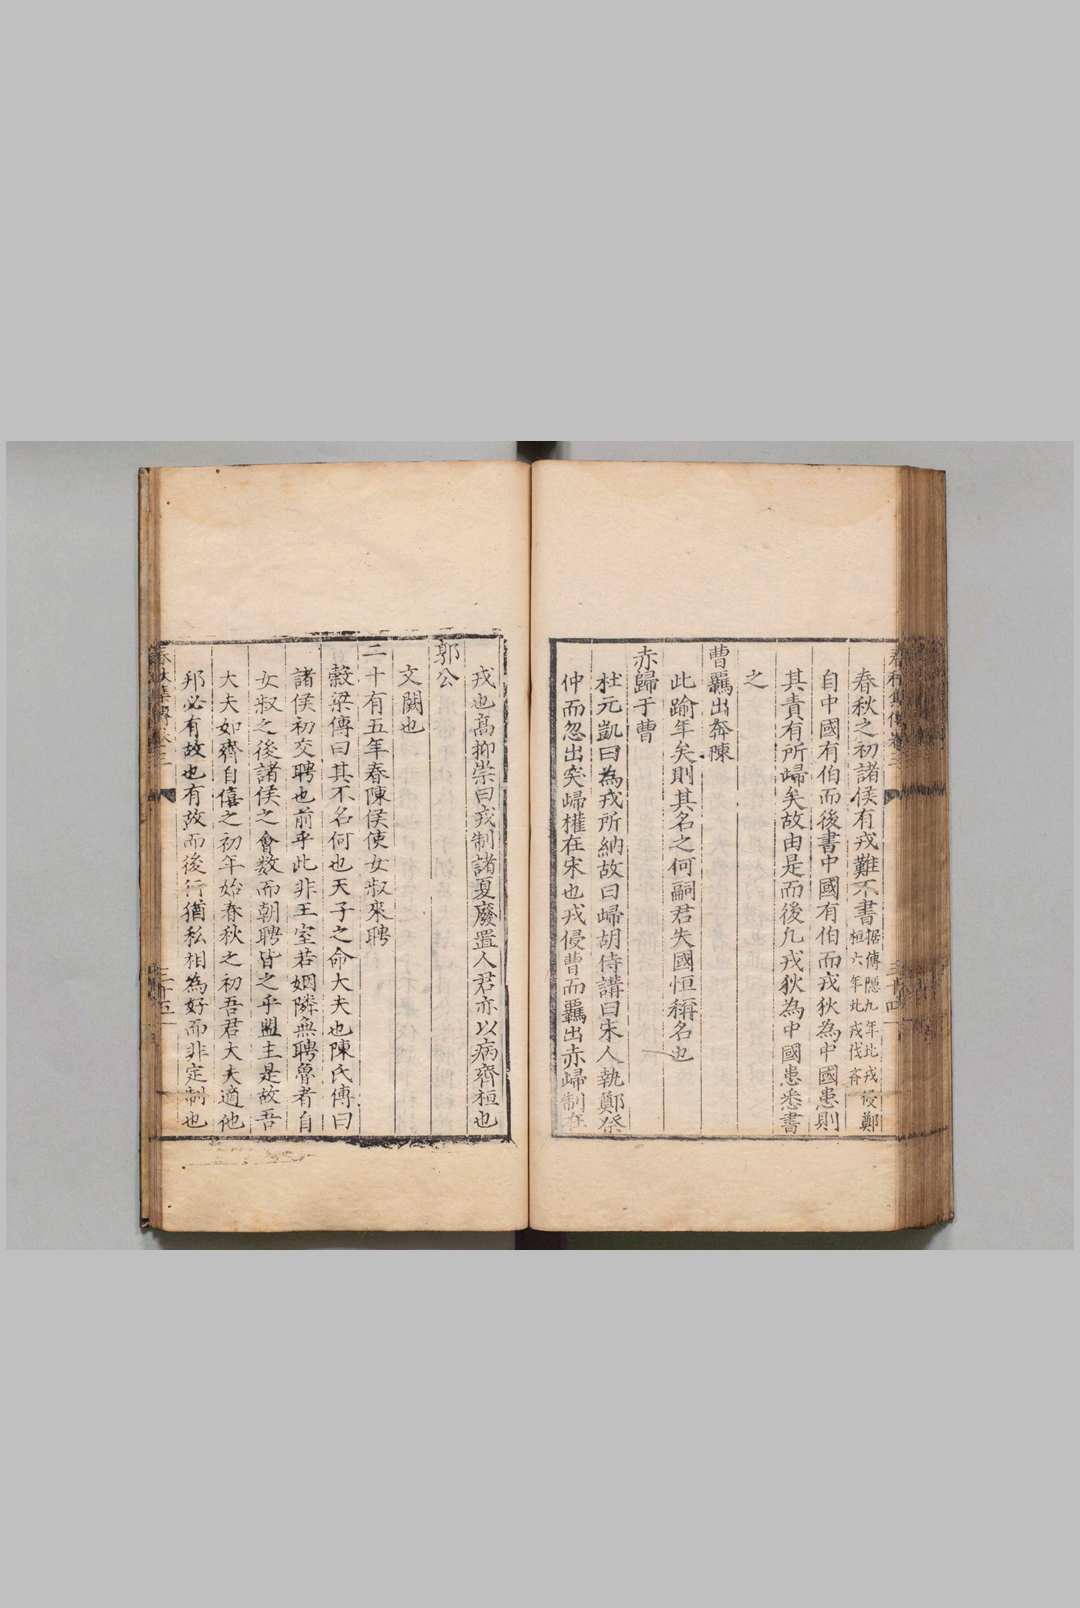 春秋之初諸侯有戎難不書據傳隱九年北戎侵鄭桓六年北戎伐齊
自中國有伯而後書中國有伯而戎狄為中國患則
其責有所歸矣故由是而後凡戎狄為中國患悉書
之
曹羈出奔陳
此踰年矣則其名之何嗣君失國恒稱名也
赤歸于曹
杜元凱曰為戎所納故曰歸胡侍講曰宋人執鄭祭
仲而忽出突歸權在宋也戎侵曹而羈出赤歸制在
戎也高抑崇曰戎制諸夏廢置人君亦以病齊桓也
郭公
文闕也
二十有五年春陳侯使女叔來聘
穀梁傳曰其不名何也天子之命大夫也陳氏傳曰
諸侯初交聘也前乎此非王室若姻隣無聘魯者自
女叔之後諸侯之會数而朝聘皆之乎盟主是故吾
大夫如齊自僖之初年始春秋之初吾君大夫適他
邦必有故也有故而後行猶私相為好而非定制也